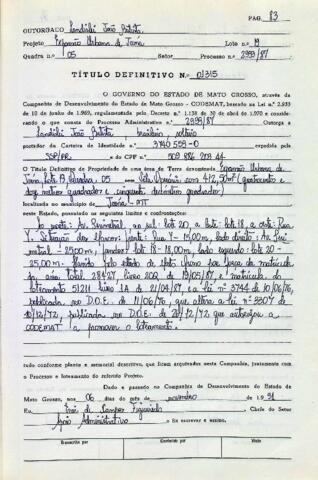 PAG. 83
OUTORGADO Landislei João Batista
Projeto Expansão Urbana de Jauru Lote n. 19
Quadra n.º 05 Setor Processo n.º 2999/87
TÍTULO DEFINITIVO N.º 01315
O GOVERNO DO ESTADO DE MATO GROSSO, através da
Companhia de Desenvolvimento do Estado de Mato Grosso - CODEMAT, baseado na Lei n.º 2.933
de 10 de junho de 1969, regulamentada pelo Decreto n.º 1.138 de 30 de abril de 1970 e considerando
o que consta do Processo Administrativo n.º 2999/87 Outorga a
Landislei João Batista brasileiro, solteiro
portador da Carteira de Identidade n.º 3.740.558-0 Expedida pela
SSP/PR e do CPF n.º 509 876 709 44
O Título Definitivo de Propriedade de uma área de Terra denominada Expansão Urbana de
Jauru, Lote 19, Quadra 05 com 412,50m² (quatrocentos e
doze metros quadrados e cinquenta decímetros quadrados)
localizada no município de Jauru-MT
neste Estado, possuindo os seguintes limites e confrontações:
Ao norte: Av. Perimetral, ao sul: lote 20, a leste: lote 18, a oeste: Rua
Y. frente: Rua Y - 15,00m, lado direito: Av. Peri
metral - 25,00m, fundos: lote 18 - 18,00m, lado esquerdo: lote 20 -
25,00m.
área total 284/87, livro 2DQ de 19/05/87 e matrícula do
loteamento 51211 livro 1A de 21/04/87 e a lei nº 3744 de 10/06/76,
publicada no D.O.E. de 11/06/76, que altera a lei nº 3307 de
10/12/72, publicada no D.O.E. de 20/12/72 que autoriza a
CODEMAT a promover o loteamento.
tudo conforme planta e memorial descritivo, que ficam arquivados nesta Companhia, juntamente com
o Processo e loteamento do referido Projeto.
Dado e passado na Companhia de Desenvolvimento do Estado de
Mato Grosso, aos 06 dias do mês de novembro de 1991
Eu, Inês de Campos Figueiredo Chefe do Setor
Apoio Administrativo o fiz escrever e assino.
Transcrito por Conferido por Visto